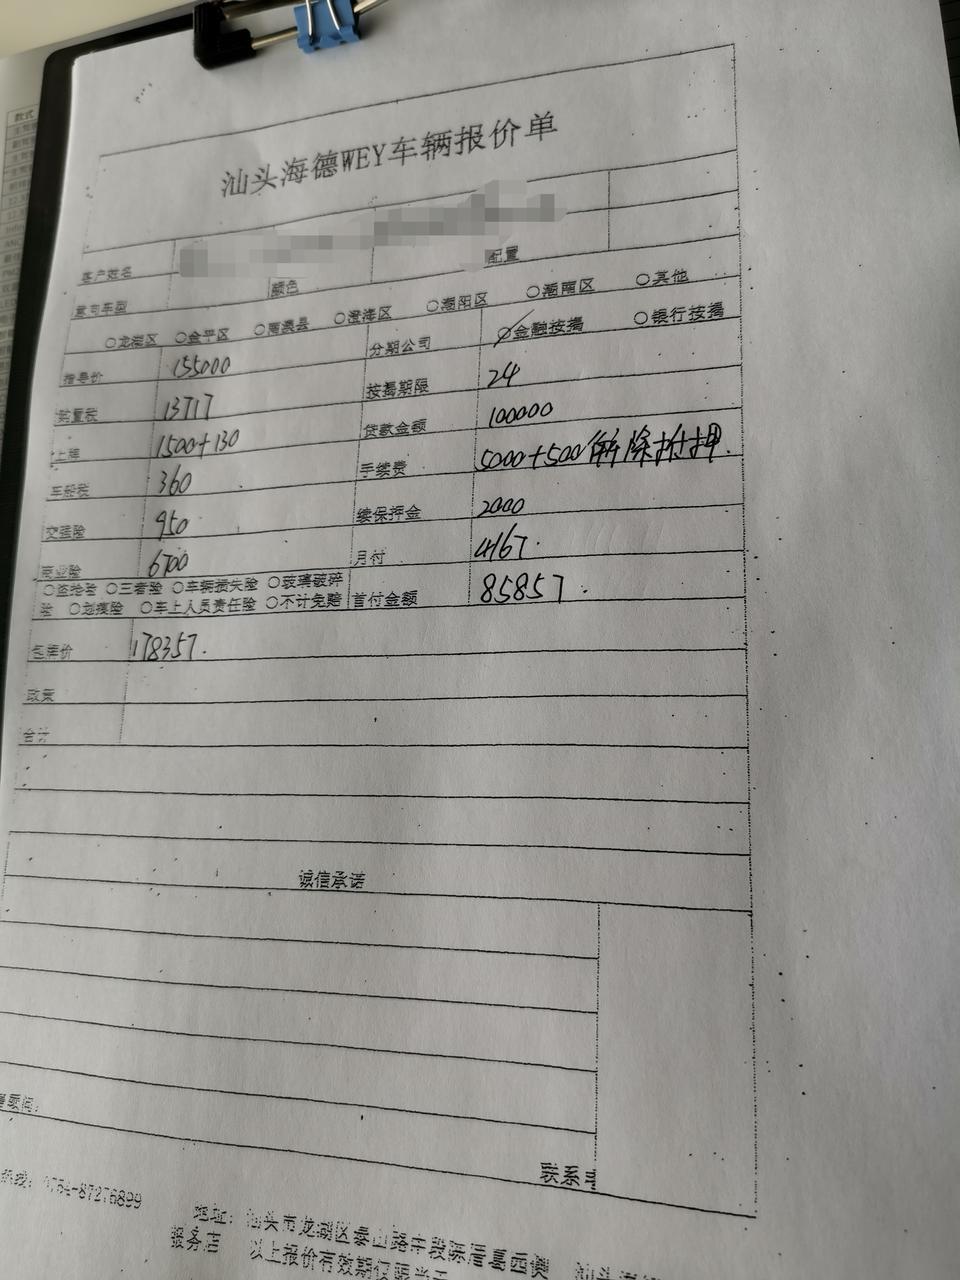 汕头海德WEY车辆报价单
客户姓名
意向车型 颜色 配置
○龙湖区 ○金平区 ○南澳县 ○澄海区 ○潮阳区 ○潮南区 ○其他
指导价 155000 分期公司 ○金融按揭 ○银行按揭
购置税 13717 按揭期限 24
上牌 1500+130 贷款金额 100000
车船税 360 手续费 5000+500解除抵押.
交强险 950 续保押金 2000
商业险 6700 月付 4167.
○盗抢险 ○三者险 ○车辆损失险 ○玻璃破碎
险 ○划痕险 ○车上人员责任险 ○不计免赔 首付金额 85857.
包牌价 178357.
政策
合计
诚信承诺
顾问:
联系
热线: 0754-87276899
地址: 汕头市龙湖区泰山路中段
服务店 以上报价有效期仅限当天